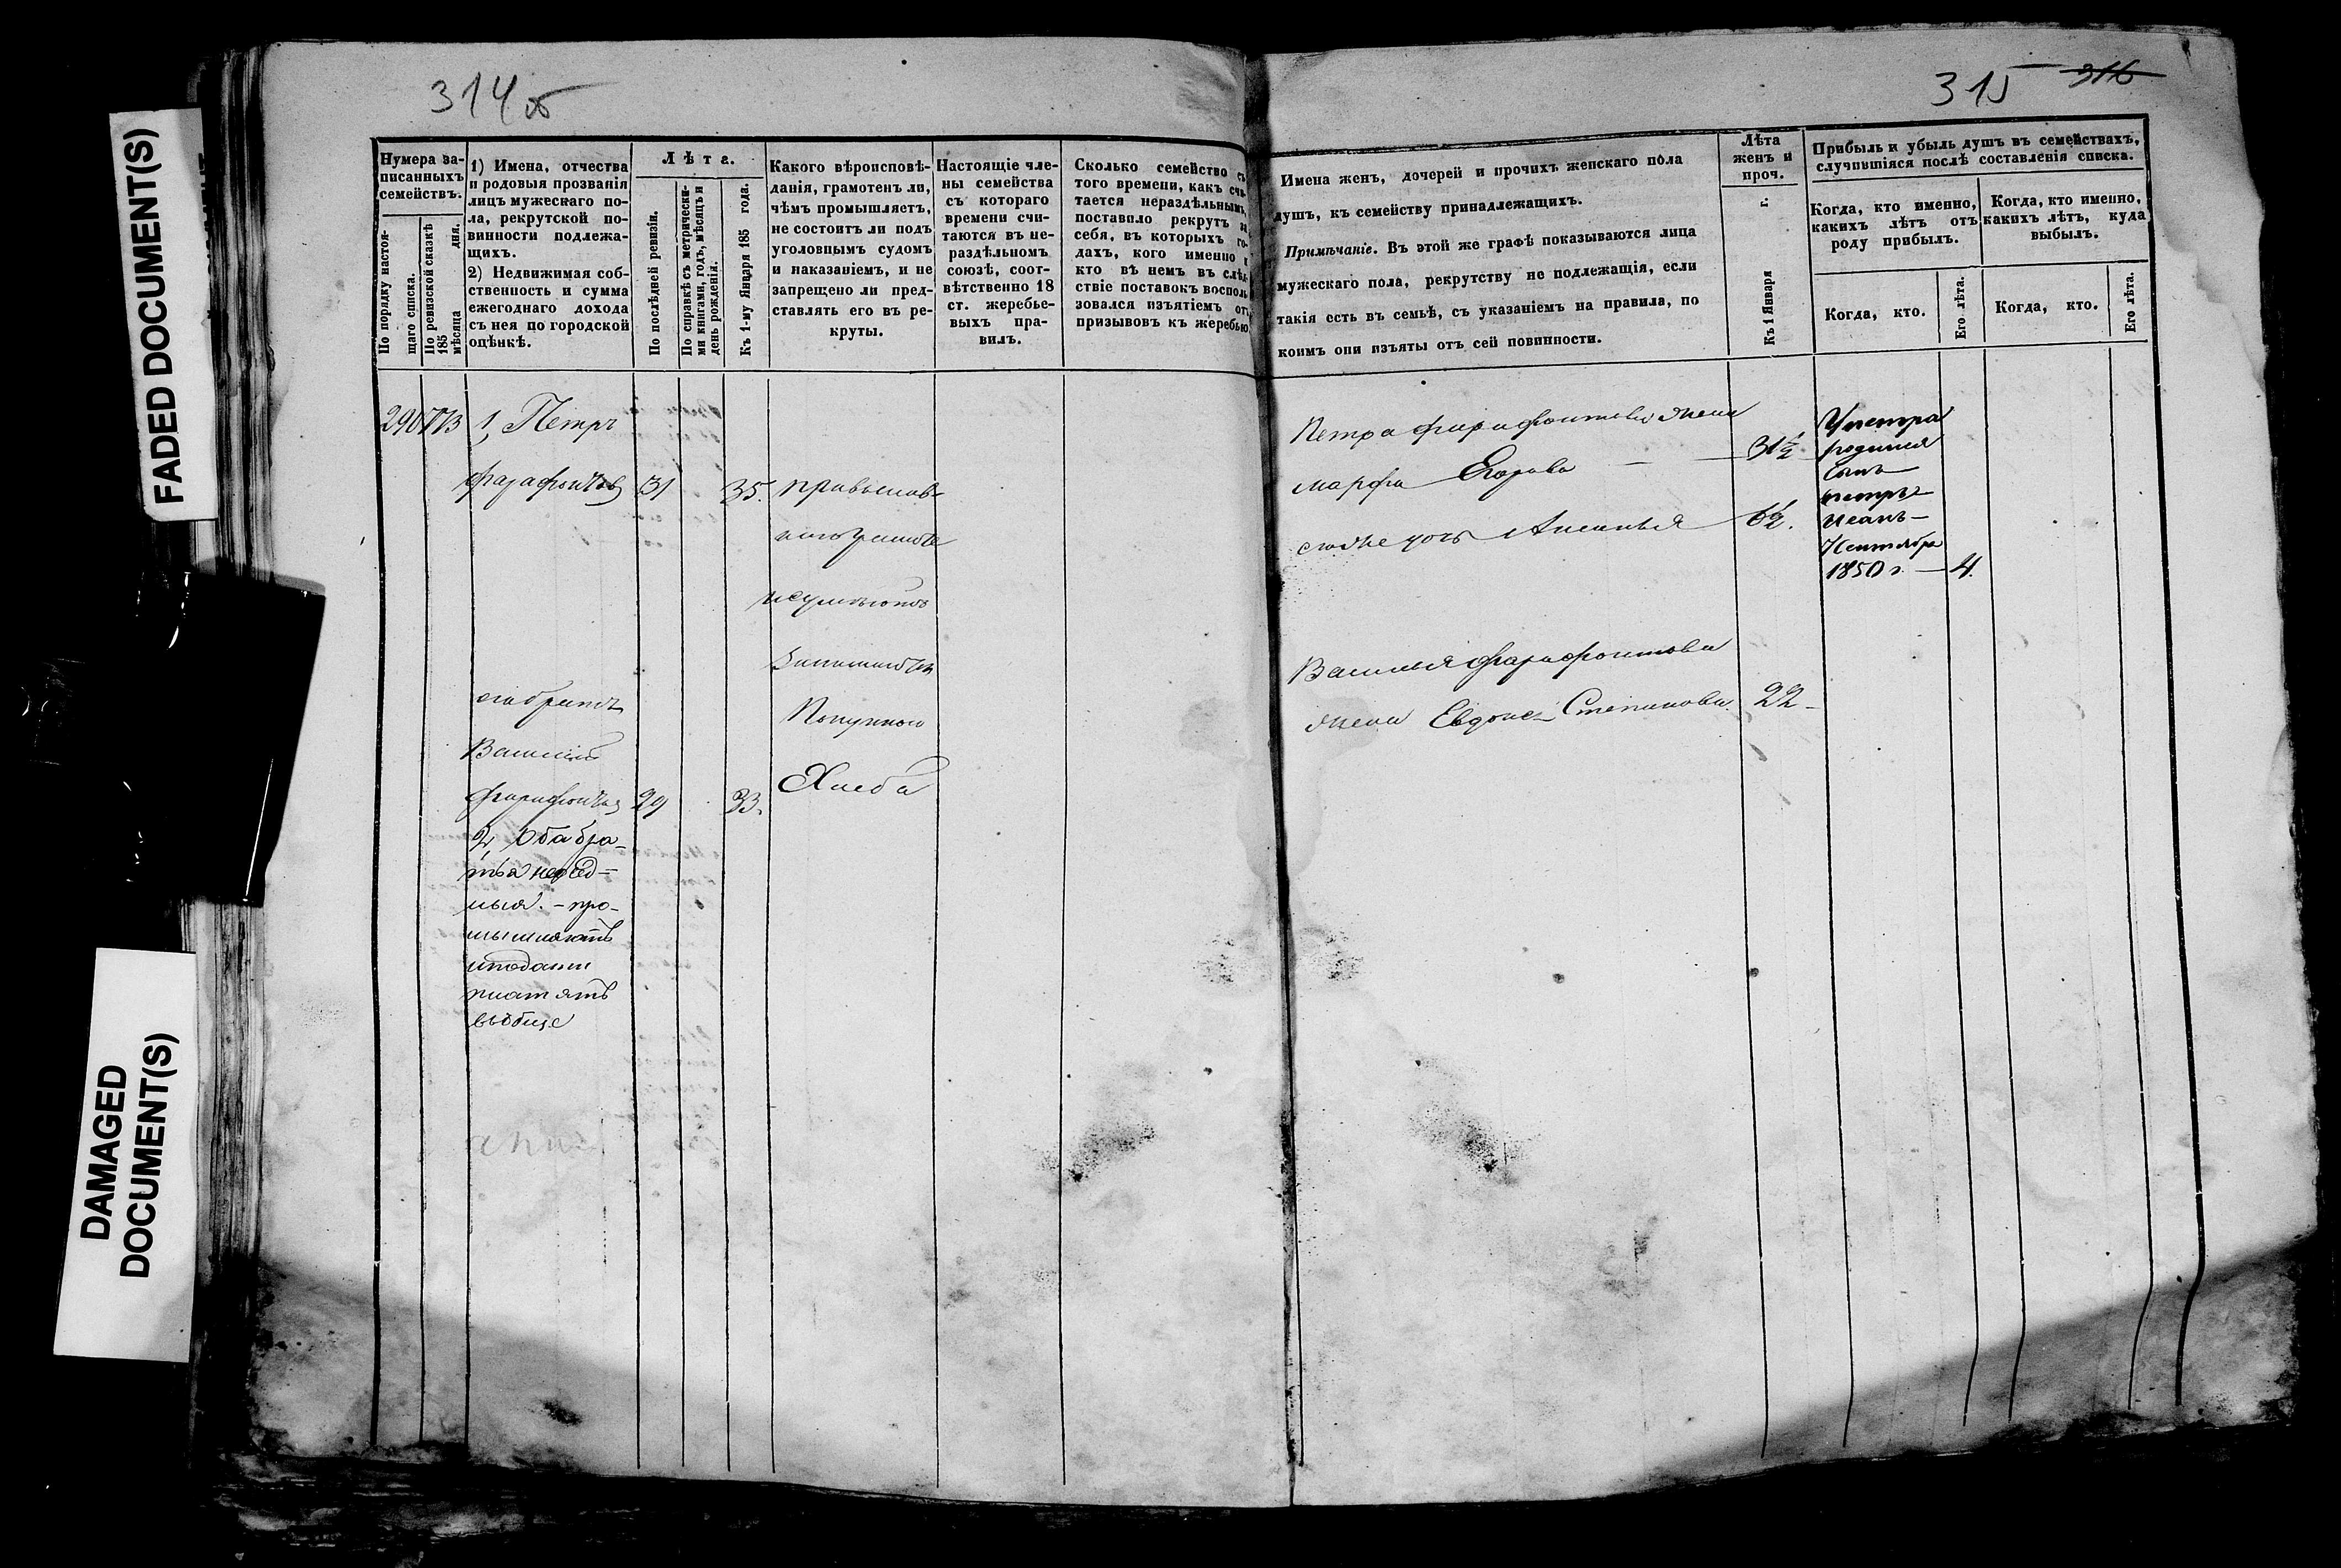 FADED DOCUMENT(S)
DAMAGED
DOCUMENT(S)
314об
Нумера за-
писанныхъ
семействъ.
По порядку настоя-
щаго списка.
По ревизской сказкѣ
185 дня.
мѣсяца
1) Имена, отчества
и родовыя прозванія
лицъ мужескаго по-
ла, рекрутской по-
винности подлежа-
щихъ.
2) Недвижимая соб-
ственность и сумма
ежегоднаго дохода
съ нея по городской
оцѣнкѣ.
Лѣта.
По послѣдней ревизіи.
По справкѣ съ метрически-
ми книгами, годъ, мѣсяцъ и
день рожденія.
Къ 1-му Января 185 года.
Какого вѣроисповѣ-
данія, грамотенъ ли,
чѣмъ промышляетъ,
не состоитъ ли подъ
уголовнымъ судомъ
и наказаніемъ, и не
запрещено ли пред-
ставлять его въ ре-
круты.
Настоящіе чле-
ны семейства
съ котораго
времени счи-
таются въ не-
раздѣльномъ
союзѣ, соот-
вѣтственно 18
ст. жеребье-
выхъ пра-
вилъ.
Сколько семейство съ
того времени, какъ счи-
тается нераздѣльнымъ,
поставило рекрутъ за
себя, въ которыхъ го-
дахъ, кого именно и
кто въ немъ въ слѣд-
ствіе поставокъ восполь
зовался изъятіемъ отъ
призывовъ къ жеребью
290 773 1, Петръ
Фарафонтовъ 31 35.
Хлеба
его братъ
Василій
Фарафонтовъ 29 33.
2, Оба бра-
тья
про-
мышляютъ
иподати
платятъ
вобще
315 316
Имена женъ, дочерей и прочихъ женскаго пола
душъ, къ семейству принадлежащихъ.
Примѣчаніе. Въ этой же графѣ показываются лица
мужескаго пола, рекрутству не подлежащія, если
такія есть въ семьѣ, съ указаніемъ на правила, по
коимъ они изъяты отъ сей повинности.
Лѣта
женъ и
проч.
Къ 1 Января г.
Прибыль и убыль душъ въ семействахъ,
случившіяся послѣ составленія списка.
Когда, кто именно,
какихъ лѣтъ отъ
роду прибылъ.
Когда, кто именно,
какихъ лѣтъ, куда
выбылъ.
Когда, кто.
Его лѣта.
Когда, кто.
Его лѣта.
Петра Фарафонтова жена
марфа Егорова 31½
дочь 6½.
Василья Фарафонтова
жена Степанова 22
Упетра
родился
сынъ
петръ
1850 г. 4.